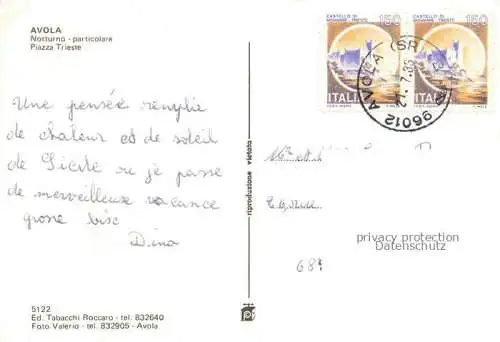 AVOLA
Notturno - particolare
Piazza Trieste
Une pensée remplie
de chaleur et de soleil
de Sicile ou je passe
de merveilleuse vacance
grosse bise
Dino
5122
Ed. Tabacchi Roccaro - tel. 832640
Foto Valerio - tel. 832905 - Avola
riproduzione vietata
CASTELLO DI 150
GIOVANNI - TRIESTE
ITALIA
CASTELLO DI 150
GIOVANNI - TRIESTE
ITALIA
96012 AVOLA (SR)
21.7.83
privacy protection
Datenschutz
687